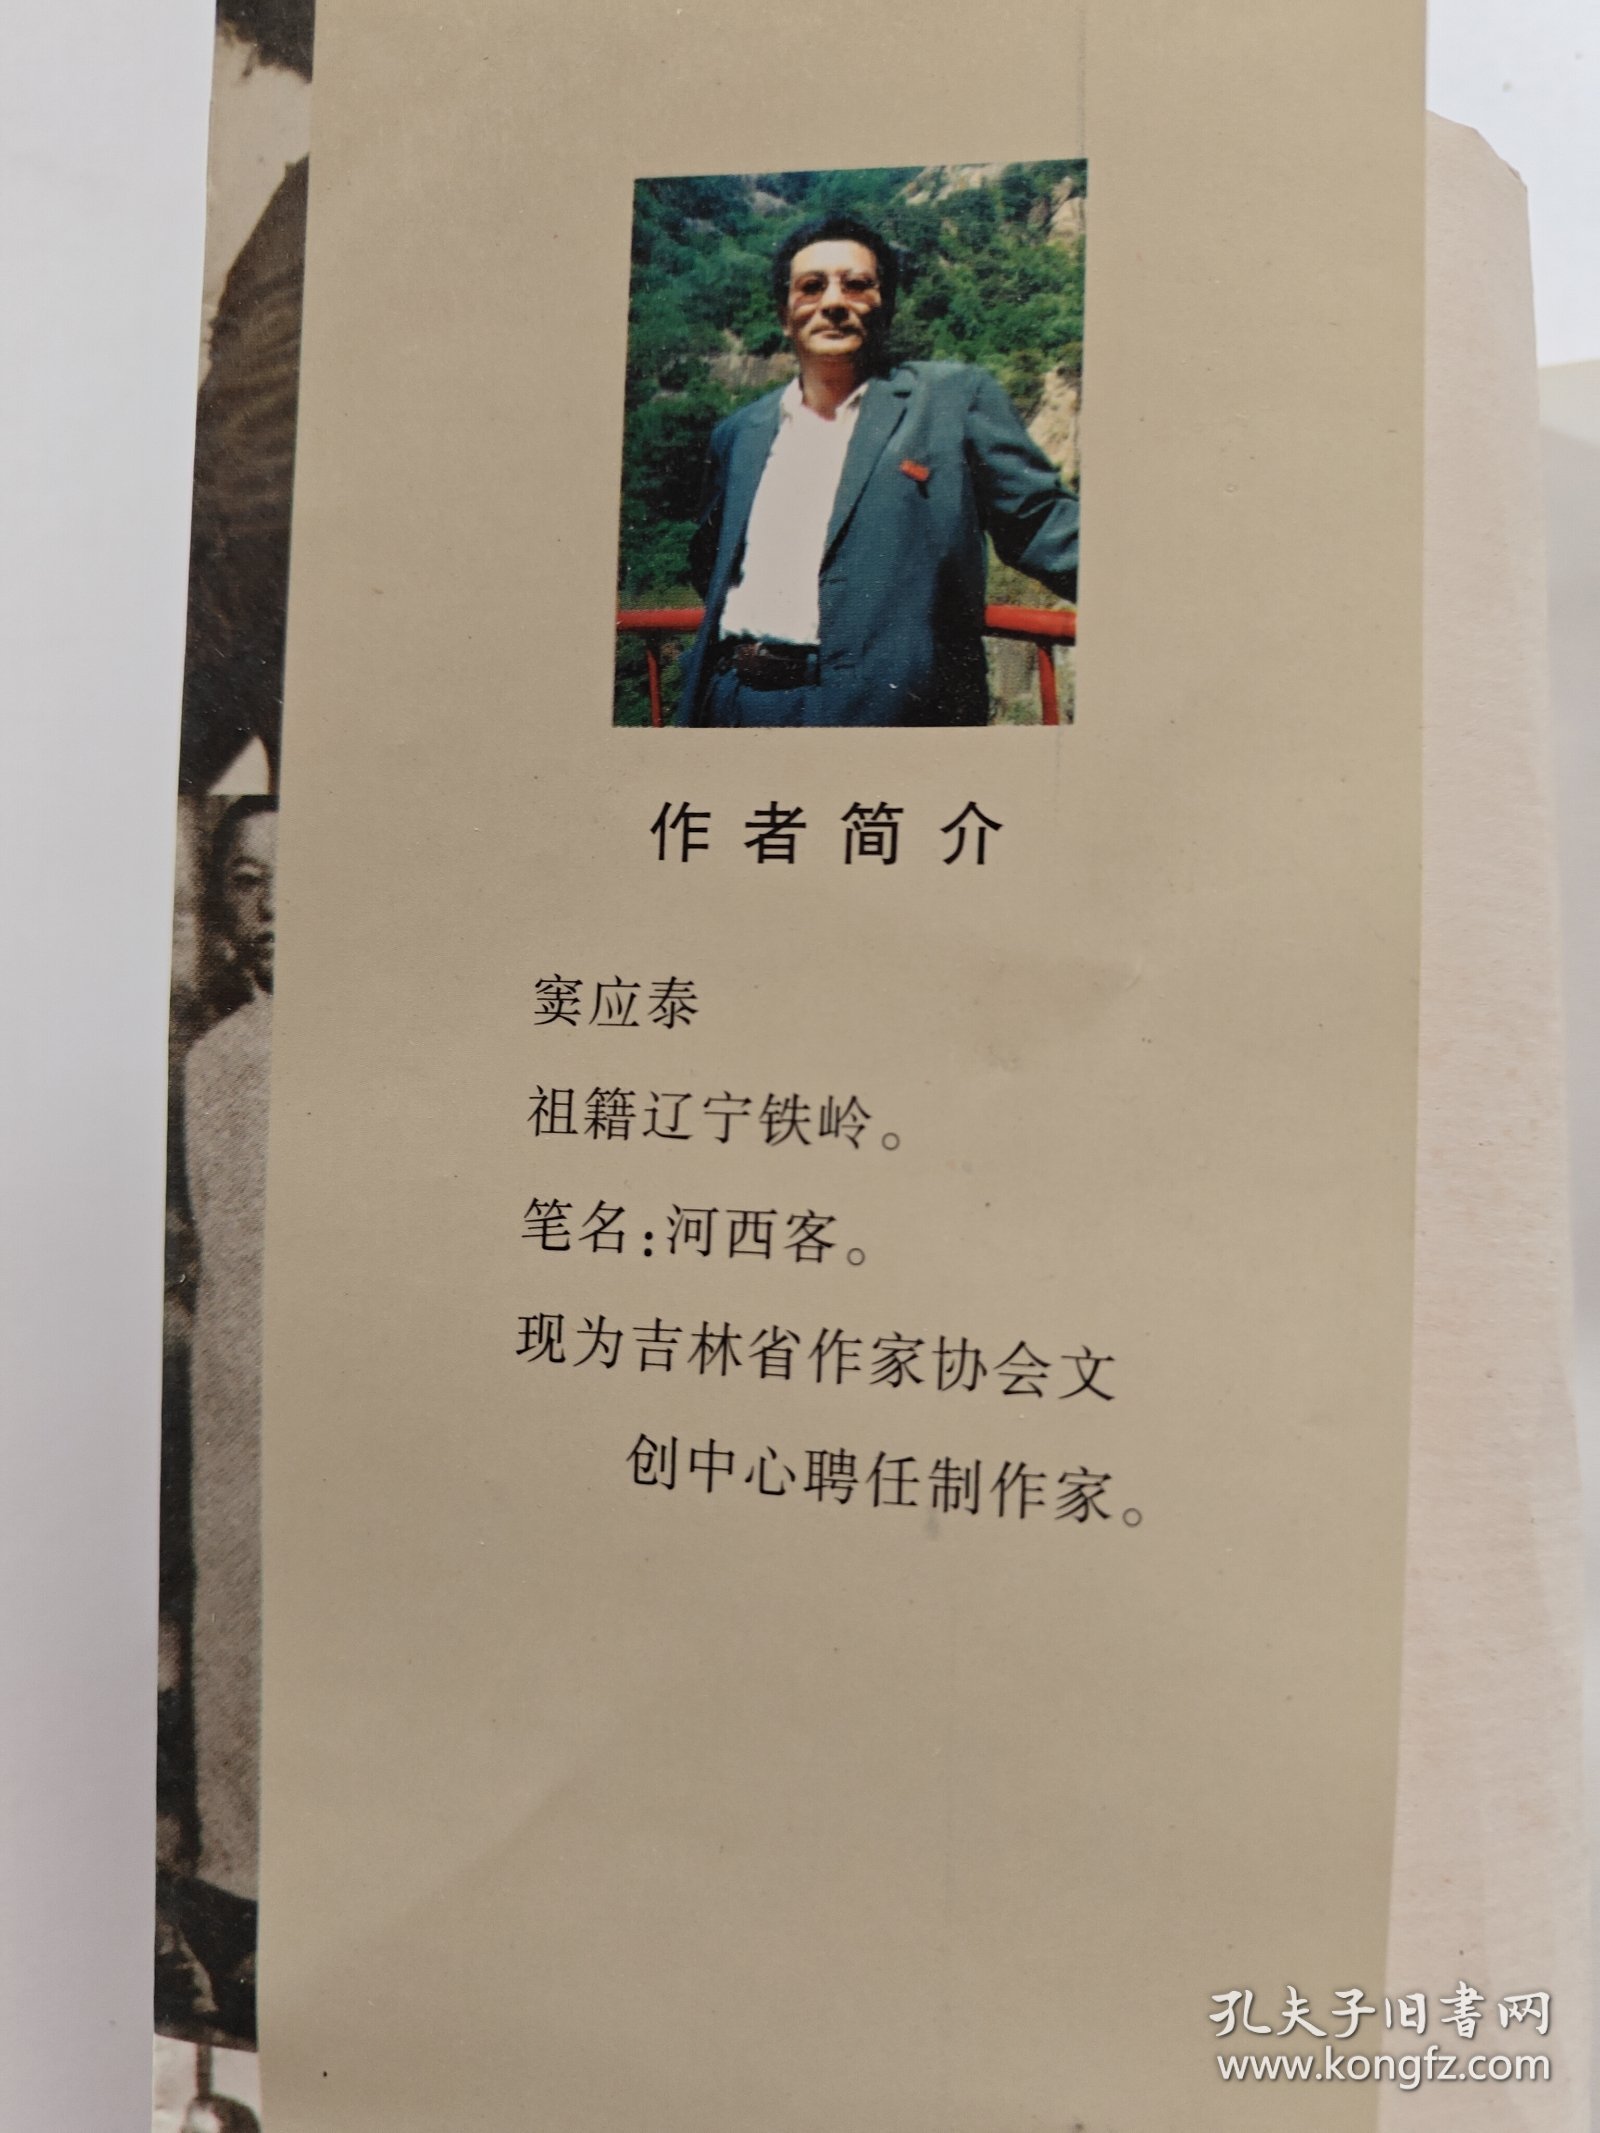 作者简介
窦应泰
祖籍辽宁铁岭。
笔名:河西客。
现为吉林省作家协会文
创中心聘任制作家。
孔夫子旧书网
www.kongfz.com